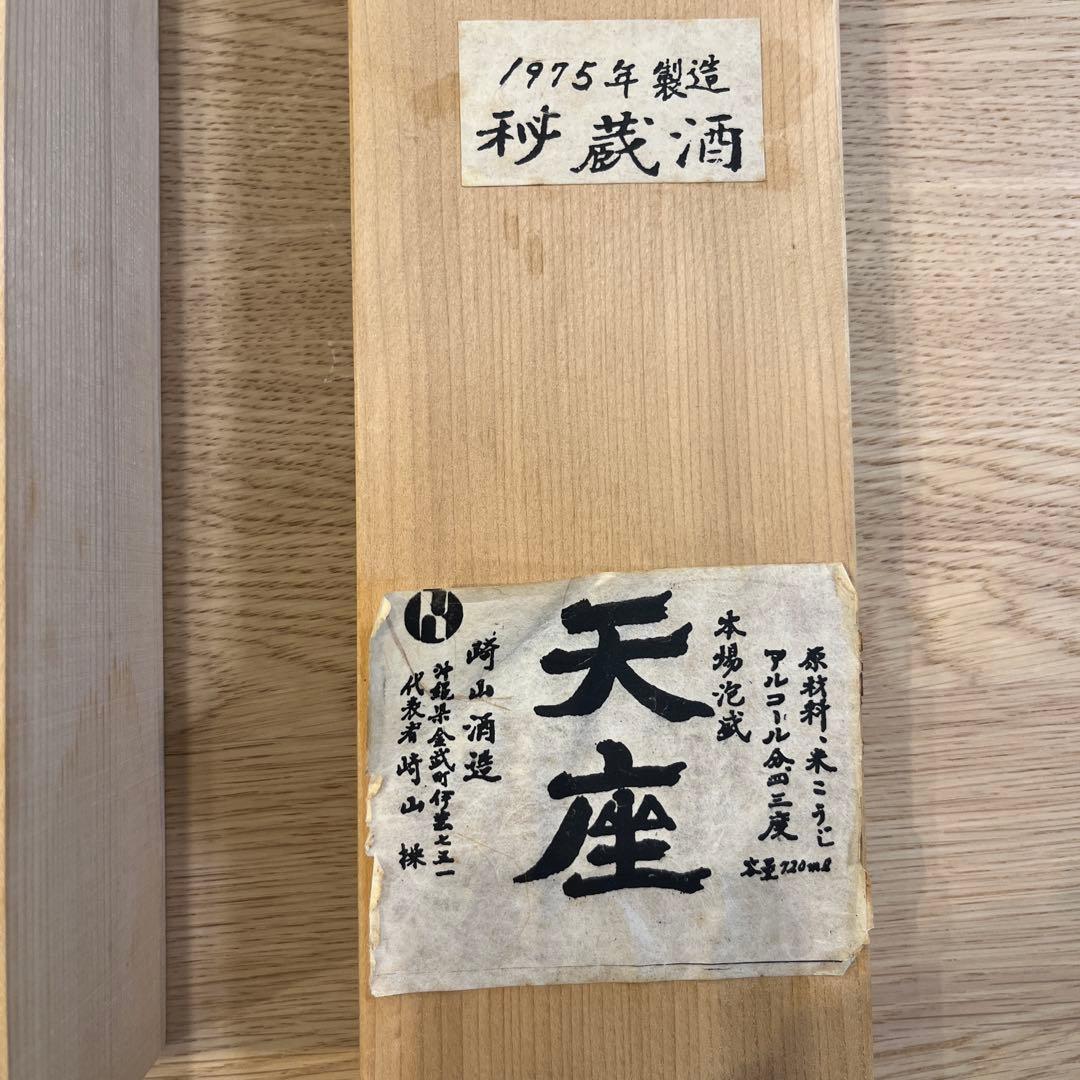 1975年製造
秘蔵酒
原材料、米こうじ
アルコール分、四三度
容量720ml
本場泡盛
天座
崎山酒造
沖縄県金武町伊芸七五一
代表者崎山操